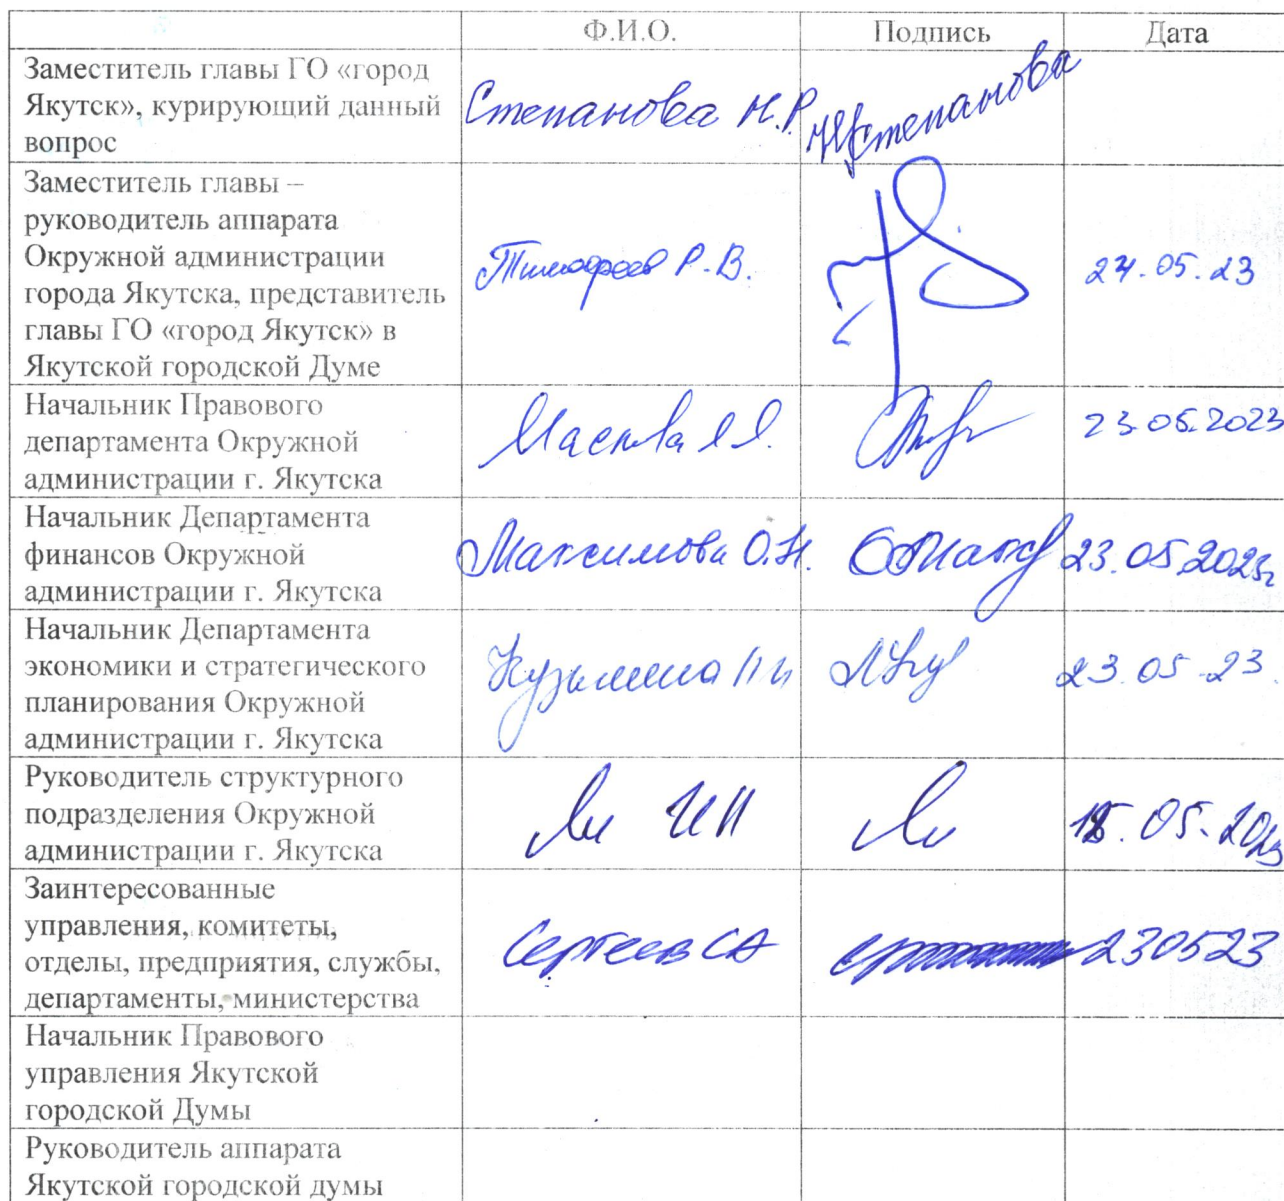 Ф.И.О. Подпись Дата
Заместитель главы ГО «город
Якутск», курирующий данный
вопрос
Степанова Н.Р. Степанова
Заместитель главы –
руководитель аппарата
Окружной администрации
города Якутска, представитель
главы ГО «город Якутск» в
Якутской городской Думе
Тимофеев Р.В. 24.05.23
Начальник Правового
департамента Окружной
администрации г. Якутска
23.05.2023
Начальник Департамента
финансов Окружной
администрации г. Якутска
Максимова О.Н. 23.05.2023г
Начальник Департамента
экономики и стратегического
планирования Окружной
администрации г. Якутска
Кузьмина 23.05.23.
Руководитель структурного
подразделения Окружной
администрации г. Якутска
Ли ИП Ли .05.2023
Заинтересованные
управления, комитеты,
отделы, предприятия, службы,
департаменты, министерства
Сергеев СА 230523
Начальник Правового
управления Якутской
городской Думы
Руководитель аппарата
Якутской городской думы